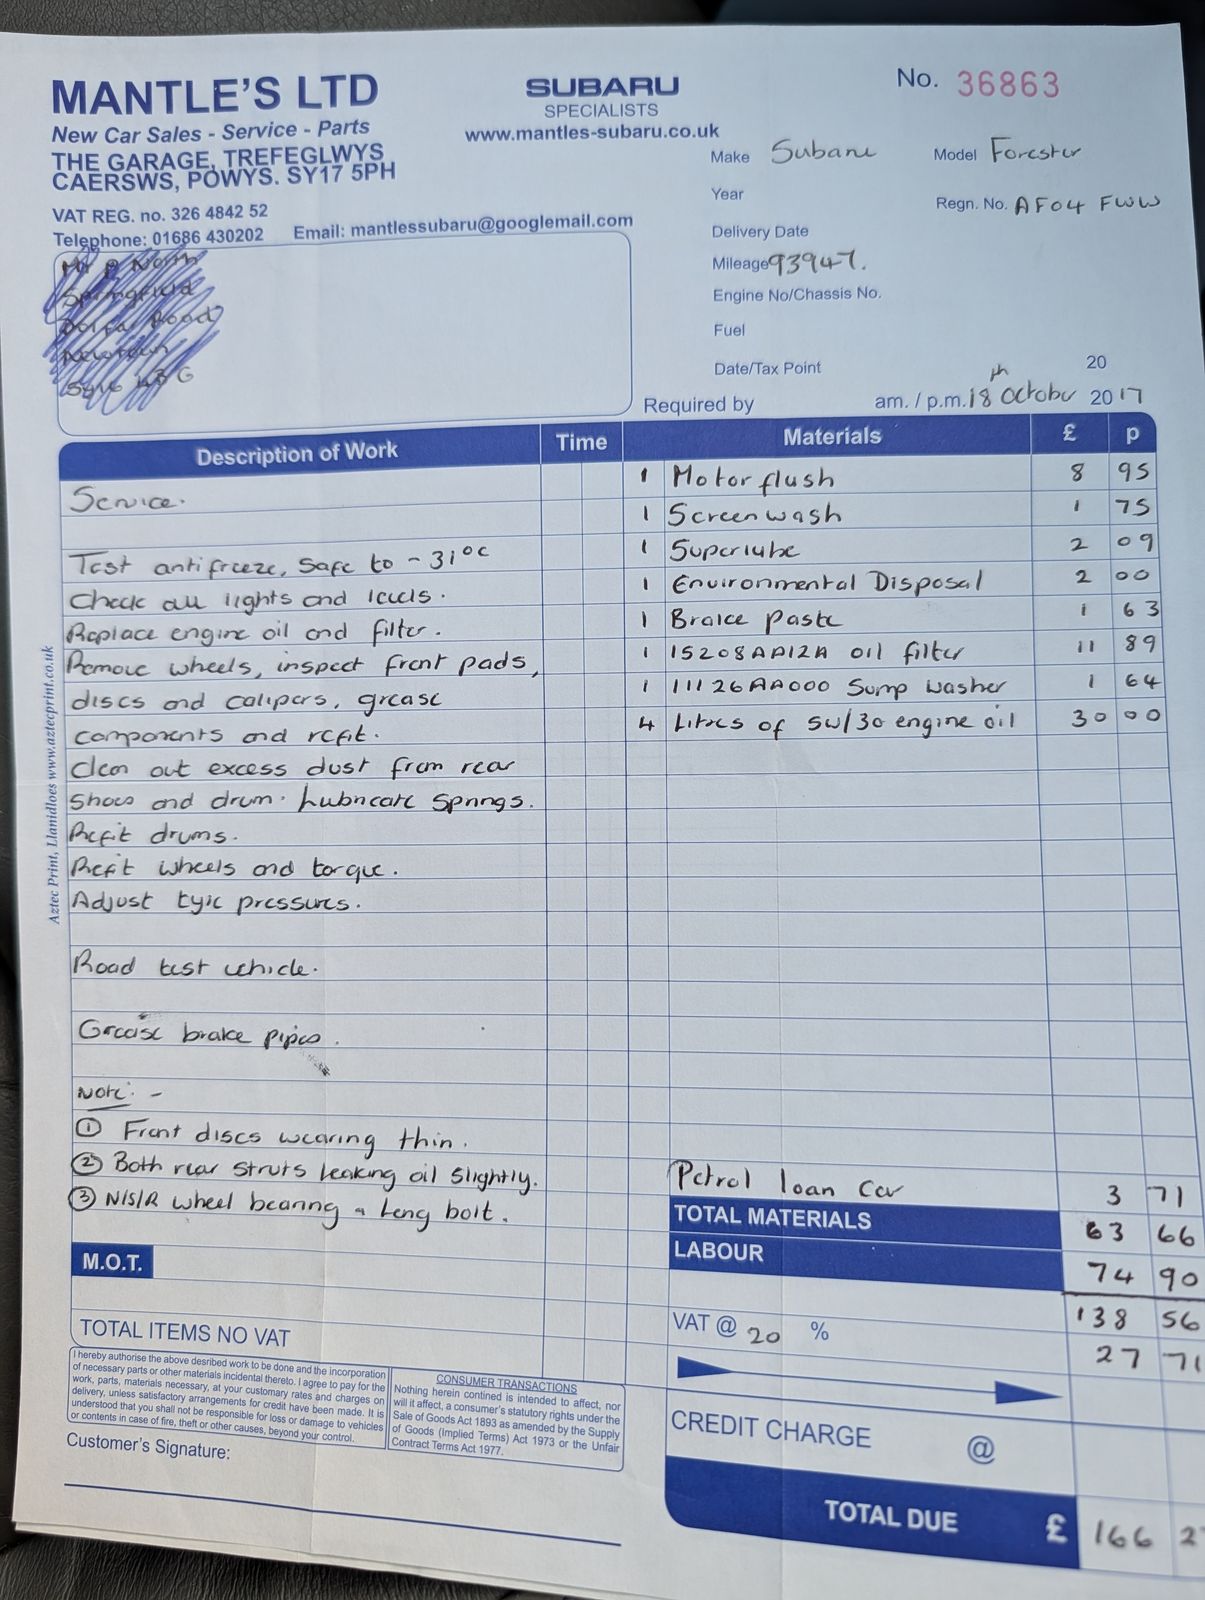 MANTLE'S LTD
New Car Sales - Service - Parts
THE GARAGE, TREFEGLWYS
CAERSWS, POWYS. SY17 5PH
VAT REG. no. 326 4842 52
Telephone: 01686 430202 Email: mantlessubaru@googlemail.com
SUBARU
SPECIALISTS
www.mantles-subaru.co.uk
No. 36863
Make Subaru Model Forester
Year Regn. No. AF04 FWW
Delivery Date
Mileage 93947.
Engine No/Chassis No.
Fuel
Date/Tax Point 20
Required by am. / p.m. 18th October 2017
Description of Work Time Materials £ p
Service.
1 Motor flush 8 95
1 Screenwash 1 75
Test antifreeze, Safe to -31°c
1 Superlube 2 09
Check all lights and levels.
1 Environmental Disposal 2 00
Replace engine oil and filter.
1 Brake paste 1 63
Remove wheels, inspect front pads,
1 15208AA12A oil filter 11 89
discs and calipers, grease
1 11126AA000 Sump washer 1 64
components and refit.
4 Litres of 5w/30 engine oil 30 00
Clean out excess dust from rear
shoes and drum. Lubricate springs.
Refit drums.
Refit wheels and torque.
Adjust tyre pressures.
Road test vehicle.
Grease brake pipes.
Note: -
① Front discs wearing thin.
② Both rear struts leaking oil slightly.
③ N/S/R wheel bearing a long bolt.
Petrol loan car 3 71
TOTAL MATERIALS 63 66
LABOUR 74 90
138 56
VAT @ 20 % 27 71
CREDIT CHARGE @
TOTAL DUE £ 166 2
M.O.T.
TOTAL ITEMS NO VAT
I hereby authorise the above desribed work to be done and the incorporation
of necessary parts or other materials incidental thereto. I agree to pay for the
work, parts, materials necessary, at your customary rates and charges on
delivery, unless satisfactory arrangements for credit have been made. It is
understood that you shall not be responsible for loss or damage to vehicles
or contents in case of fire, theft or other causes, beyond your control.
CONSUMER TRANSACTIONS
Nothing herein contined is intended to affect, nor
will it affect, a consumer's statutory rights under the
Sale of Goods Act 1893 as amended by the Supply
of Goods (Implied Terms) Act 1973 or the Unfair
Contract Terms Act 1977.
Customer's Signature:
Aztec Print, Llanidloes www.aztecprint.co.uk